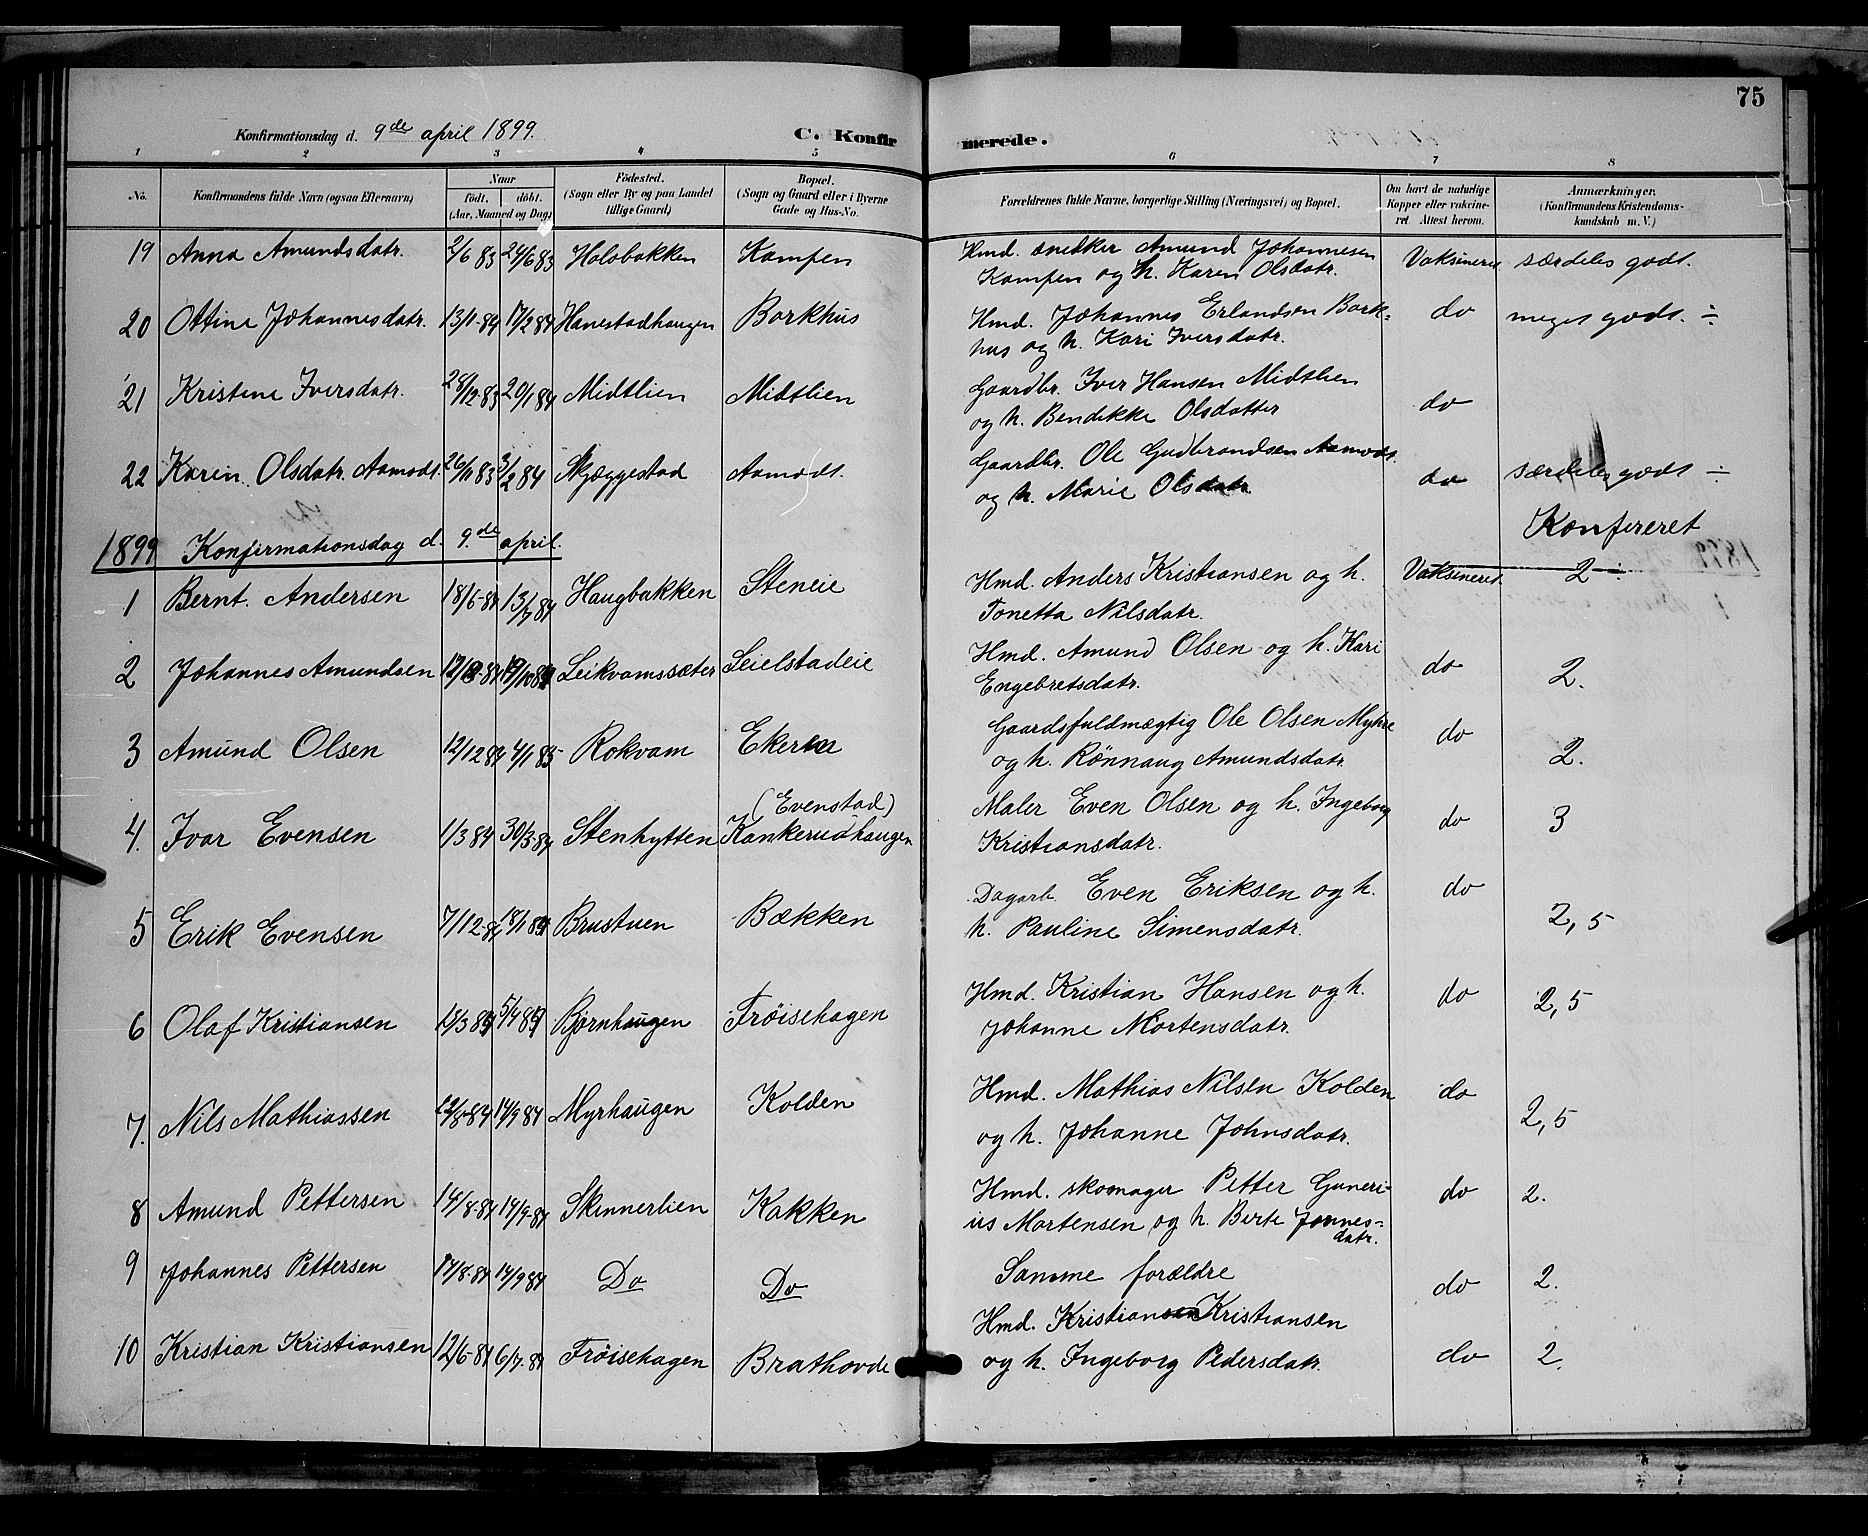 75
Konfirmationsdag d. 9de april 1899. C. Konfirmerede.
1 2 3 4 5 6 7 8
No. Konfirmandens fulde Navn (ogsaa Efternavn) Naar født. døbt. (Aar, Maaned og Dag) Fødested. (Sogn eller By og paa Landet tillige Gaard) Bopæl. (Sogn og Gaard eller i Byerne Gade og Hus-No. Forældrenes fulde Navne, borgerlige Stilling (Næringsvei) og Bopæl. Om havt de naturlige Kopper eller vakcineret. Attest herom. Anmærkninger. (Konfirmandens Kristendomskundskab m. V.)
19 Anna Amundsdatr. 2/6 83 24/6 83 Holobakken Kampen Hmd. snedker Amund Johannesen Vaksineret særdeles godt.
Kampen og h. Karen Olsdatr.
20 Ottine Johannesdatr. 13/1-84 17/2 84 Hanestadhaugen Barkhus Hmd. Johannes Erlandsen Bark- do meget godt. ÷
hus og h. Kari Iversdatr.
21 Kristine Iversdatr. 28/12-83 20/1 84 Midtlien Midtlien Gaardbr. Iver Hansen Midtlien do
og h. Bendikke Olsdatter
22 Karin Olsdatr. Aamodt. 26/11 83 3/2 84 Skjæggestad Aamodt. Gaardbr. Ole Gudbrandsen Aamodt. do særdeles godt ÷
og h. Marie Olsdatr.
1899 Konfirmationsdag d. 9.de april. Konfereret
1 Bernt. Andersen 18/6-84 13/7 84 Haugbakken Steneie Hmd. Anders Kristiansen og h. Vaksineret 2
Tonetta Nilsdatr.
2 Johannes Amundsen Leikvamssæter Leielstadeie Hmd. Amund Olsen og h. Kari do 2.
Engebretsdatr.
3 Amund Olsen 12/12 84 4/1 85 Rokvam Ekerne Gaardsfuldmægtig Ole Olsen Myhre do 2.
og h. Rønnaug Amundsdatr.
(Evenstad)
4. Ivar Evensen 1/3 84 30/3-84 Stenhytten Kankerudhaugen Maler Even Olsen og h. Ingeborg do 3
Kristiansdatr.
5 Erik Evensen 7/12-84 18/1 85 Brustuen Bækken Dagarb. Even Eriksen og h. do 2,5
h. Pauline Simensdatr.
6 Olaf Kristiansen Bjørnhaugen Frøisehagen Hmd. Kristian Hansen og h. do 2,5
Johanne Mortensdatr.
7. Nils Mathiassen 12/8-84 14/9 84 Myrhaugen Kolden Hmd. Mathias Nilsen Kolden do 2,5
og h. Johanne Johnsdatr.
8 Amund Pettersen 14/8-84 14/9-84 Skinnerlien Kakken Hmd. skomager Petter Guneri- do 2.
us Mortensen og h. Berte Jonnes-
datr.
9 Johannes Pettersen 14/8-84 14/9 84 Do Do Samme forældre do 2.
10 Kristian Kristiansen 12/6-84 6/7-84 Frøisehagen Brathovde Hmd. Kristian Kristiansen do 2.
og h. Ingeborg Pedersdatr.